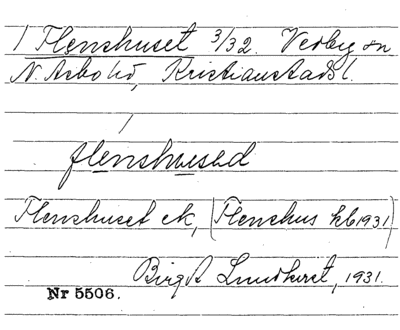 1 Flenshuset 3/32. Vedby sn
N. Åsbo hd, Kristianstads l.
flenshused
Flenshuset ek, (Flenshus kb 1931)
Birgit Lundkvist, 1931.
Nr 5506.